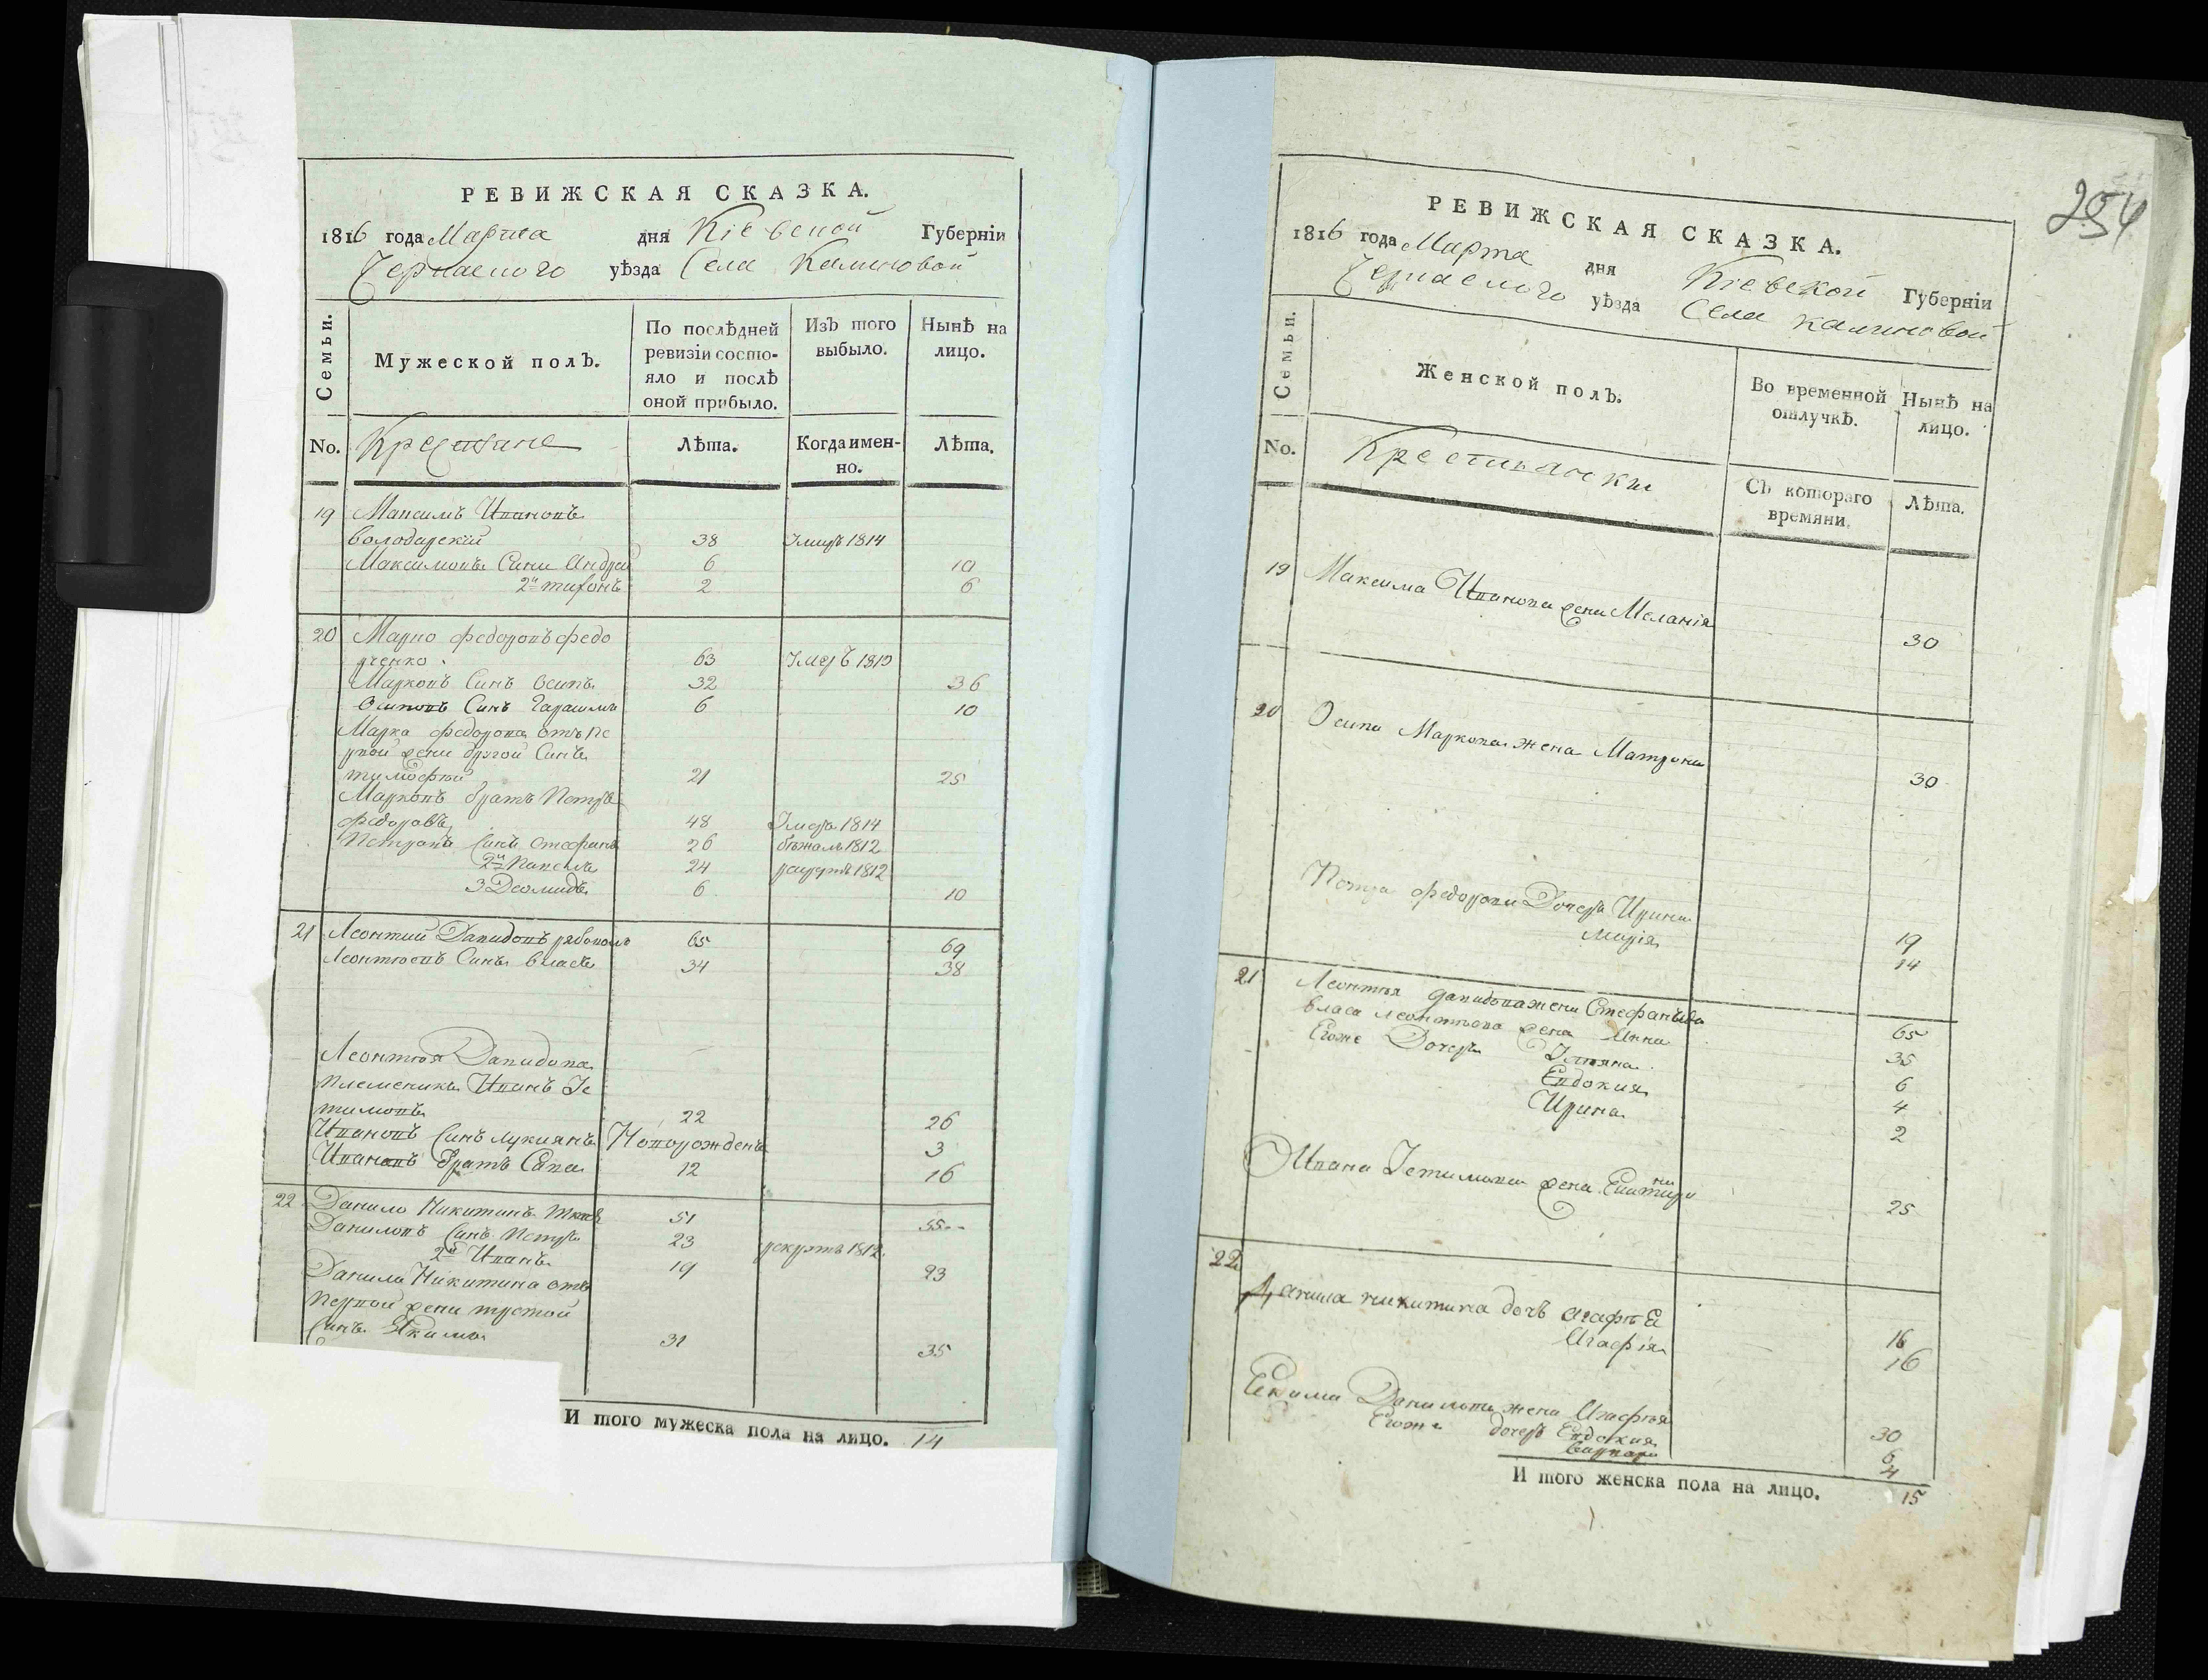 РЕВИЖСКАЯ СКАЗКА.
1816 года Марта дня Кіевской Губерніи
Черкаского уѣзда Села Калиновой
Семьи.
Мужеской полъ.
По послѣдней ревизіи состояло и послѣ оной прибыло.
Изъ того выбыло.
Нынѣ на лицо.
No. Крестяне Лѣта. Когда имен- Лѣта.
но.
19 Максимъ Ивановъ
Володарскій 38 Умеръ 1814
Максимовы Сини Андрей 6 10
2й тихонъ 2 6
20 Марко федоровъ федо
рченко 63 Умеръ 1813
Марковъ Синъ Осипъ 32 36
Осиповъ Синъ Гарасимъ 6 10
Марка федорова отъ пе
рвой жени другой Синъ
тимофѣй 21 25
Марковъ братъ Петръ
федоровъ 48 Умеръ 1814
Петровъ Синъ стефанъ 26 бѣжалъ 1812
2й Павелъ 24 рекрутъ 1812
3 Деомидъ 6 10
21 Леонтий Давидовъ 65 69
Леонтіевъ Синъ власъ 34 38
Леонтія Давидова
племеникъ Иванъ Ге
тимовъ 22 26
Ивановъ Синъ Лукиянъ Новорожденъ 3
Ивановъ братъ Сава 12 16
22 Данило Никитинъ 51 55
Даниловъ Синъ Петръ 23 рекрутъ 1812
2й Иванъ 19 23
Данила Никитина отъ
первой жени третой
Синъ Якимъ 31 35
И того мужеска пола на лицо. 14
254
РЕВИЖСКАЯ СКАЗКА.
1816 года Марта дня Кіевской Губерніи
Черкаского уѣзда Села калиновой
Семьи.
Женской полъ.
Во временной отлучкѣ.
Нынѣ на лицо.
No. Крестианки Съ котораго времяни. Лѣта.
19 Максима Иванова жена Меланія 30
20 Осипа Маркова жена Матрона 30
Петра федорова Дочеръ Ирина 19
Марія 14
21 Леонтія давидова жена Стефанида 65
власа леонтьева жена Анна 35
Егоже Дочеръ Уляна 6
Евдокия 4
Ирина 2
Ивана Гетимова жена Екатири
на 25
22 Данила никитина дочъ 16
Агафія 16
Екима Данилова жена Агафія 30
Егоже дочеръ Евдокия 6
Варвара 4
И того женска пола на лицо. 15